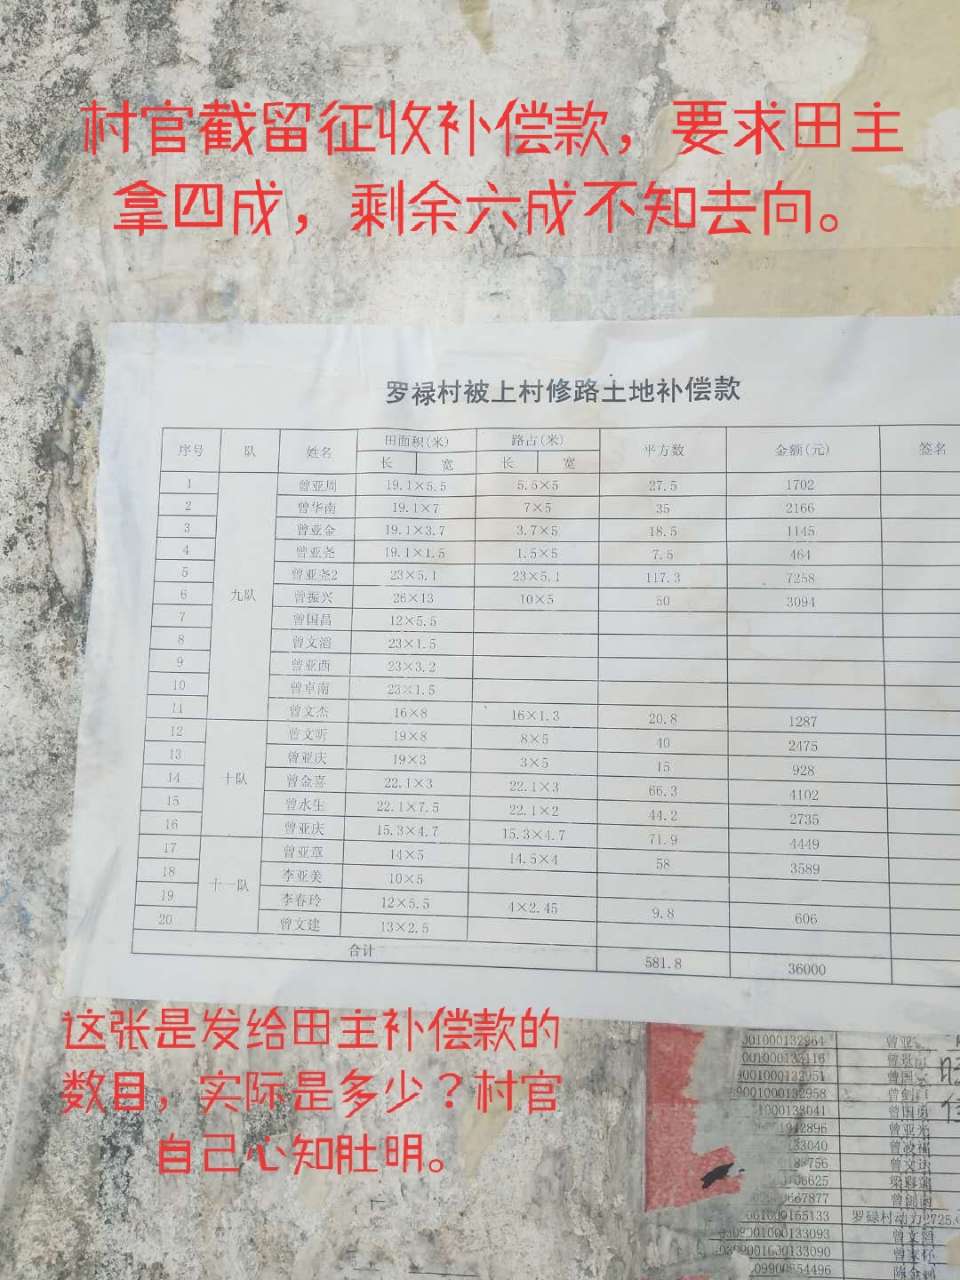 村官截留征收补偿款，要求田主
拿四成，剩余六成不知去向。
罗禄村被上村修路土地补偿款
序号 队 姓名 田面积(米) 路占(米) 平方数 金额(元) 签名
长 宽 长 宽
1 曾亚周 19.1×5.5 5.5×5 27.5 1702
2 曾华南 19.1×7 7×5 35 2166
3 曾亚金 19.1×3.7 3.7×5 18.5 1145
4 曾亚尧 19.1×1.5 1.5×5 7.5 464
5 曾亚尧2 23×5.1 23×5.1 117.3 7258
6 九队 曾振兴 26×13 10×5 50 3094
7 曾国昌 12×5.5
8 曾文滔 23×1.5
9 曾亚西 23×3.2
10 曾卓南 23×1.5
11 曾文杰 16×8 16×1.3 20.8 1287
12 曾文昕 19×8 8×5 40 2475
13 曾亚庆 19×3 3×5 15 928
14 十队 曾金喜 22.1×3 22.1×3 66.3 4102
15 曾水生 22.1×7.5 22.1×2 44.2 2735
16 曾亚庆 15.3×4.7 15.3×4.7 71.9 4449
17 曾亚章 14×5 14.5×4 58 3589
18 李亚美 10×5
19 十一队 李春玲 12×5.5 4×2.45 9.8 606
20 曾文建 13×2.5
合计 581.8 36000
这张是发给田主补偿款的
数目，实际是多少？村官
自己心知肚明。
001000132964 曾亚
001000133116
001000132951 曾国
9001000132958
1000133041 曾国
942896 曾亚
33040
756 曾文
06625
667877
001000165133 罗禄村动力2725.
009001000133093 曾文
009001000133090
09900854496 陈金